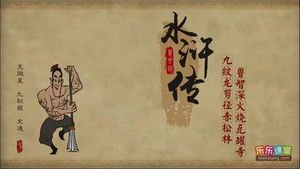 水浒传
鲁智深火烧瓦罐寺
九纹龙剪径赤松林
天微星 九纹龙 史进
乐乐课堂
leleketang.com